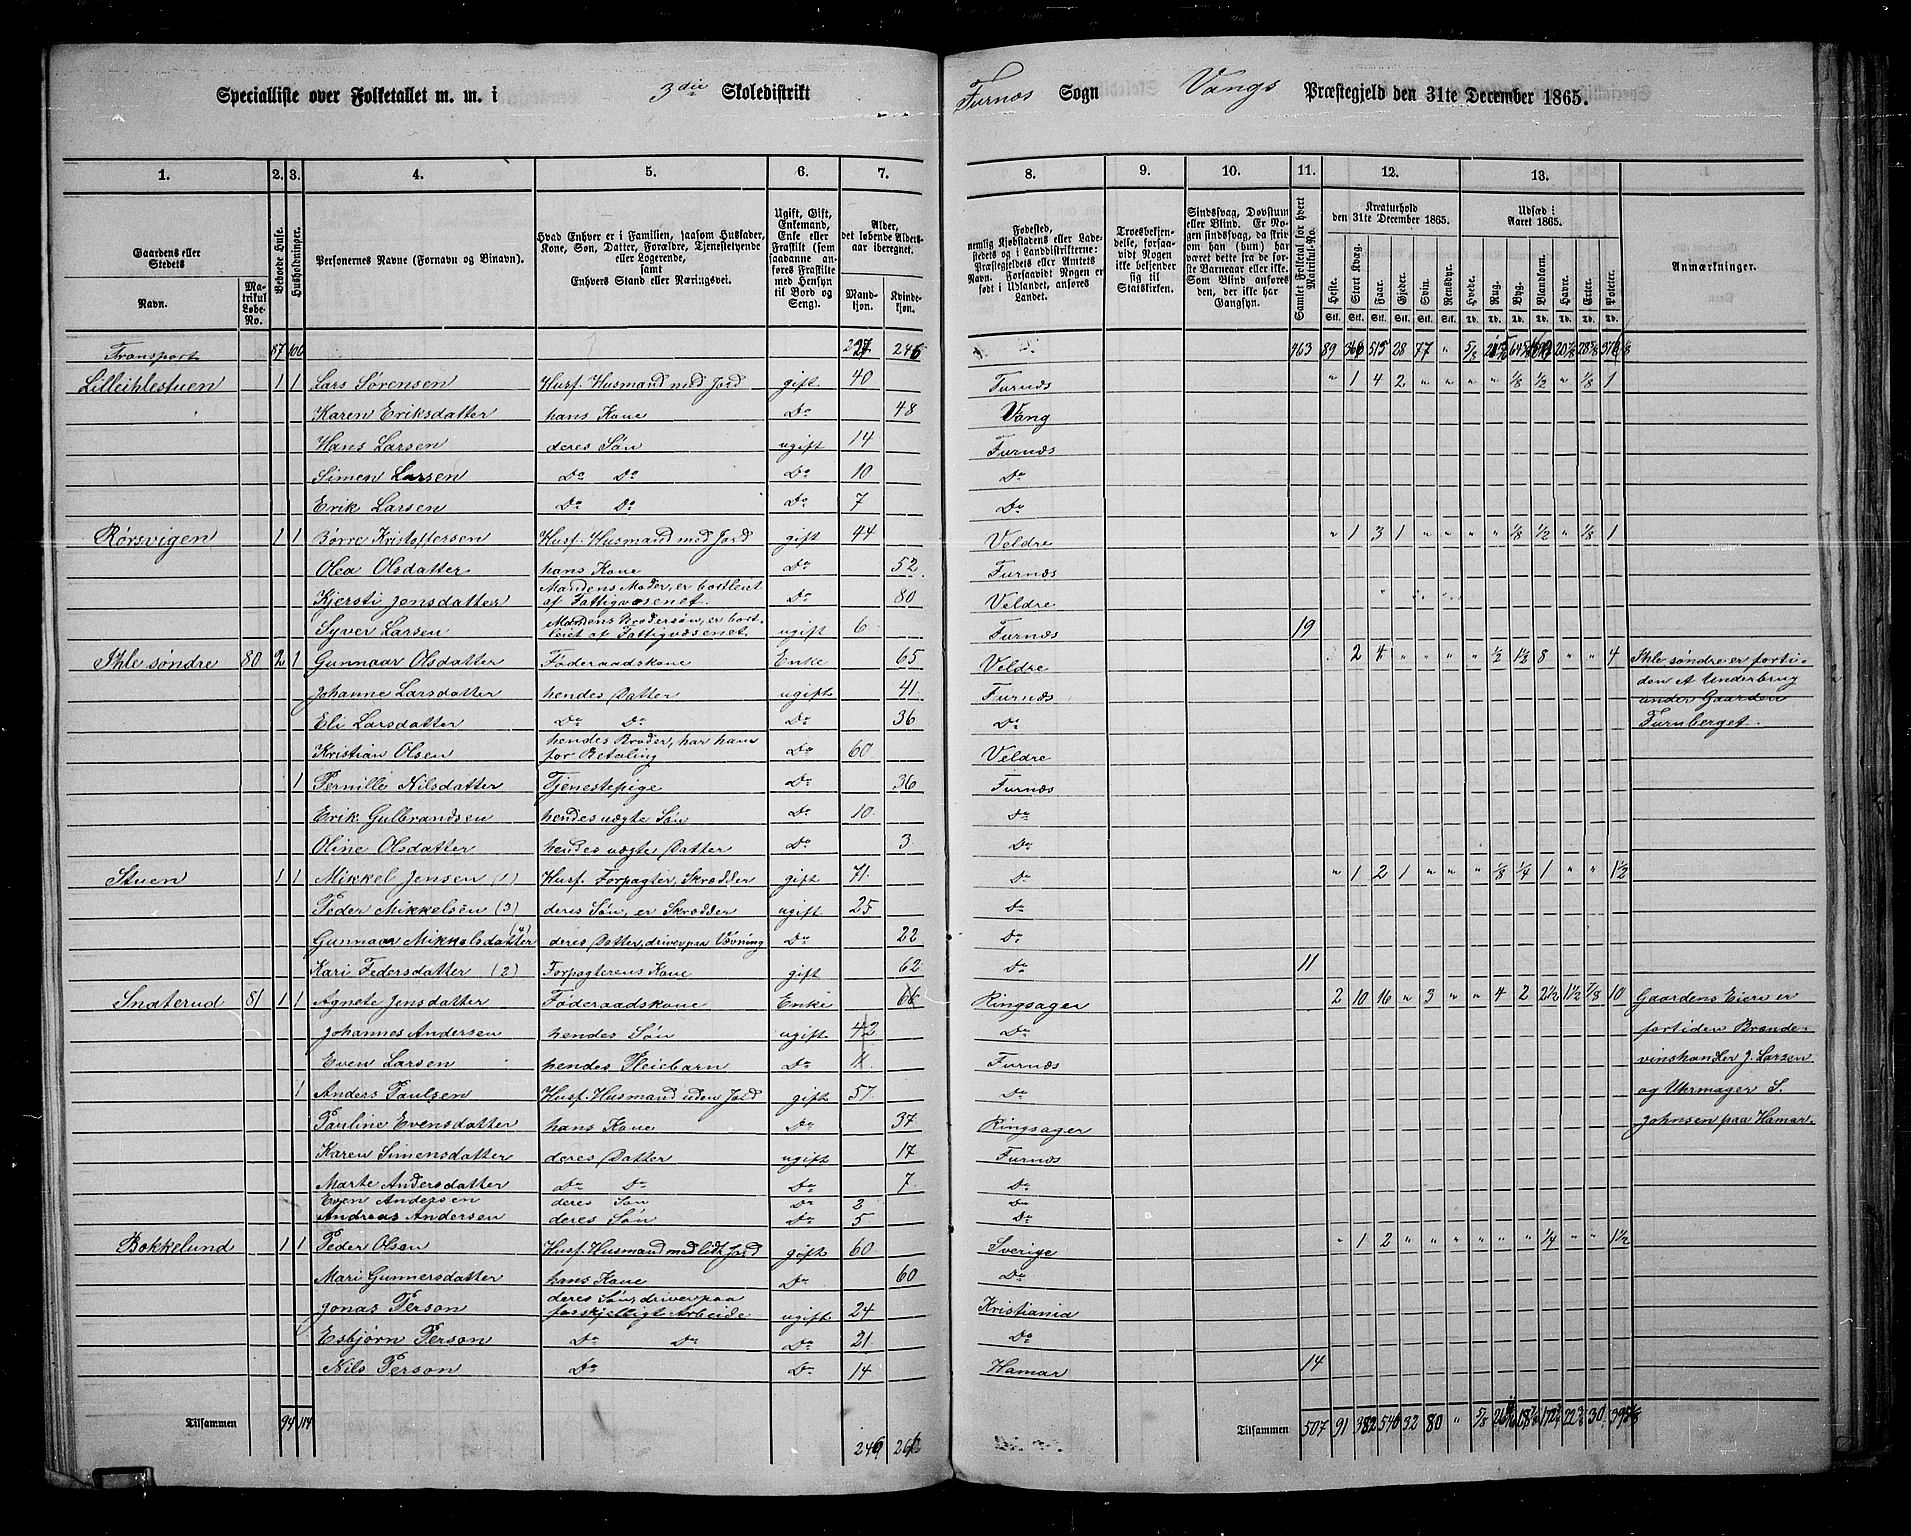 Specialliste over Folketallet m. m. i 3die Skoledistrikt Furnæs Sogn Vangs Præstegjeld den 31te December 1865.
1. 2. 3. 4. 5. 6. 7. 8. 9. 10. 11. 12. 13.
Gaardens eller Stedets Navn. Matrikul Løbe-No. Beboede Huse. Husholdninger. Personernes Navne (Fornavn og Binavn).
Hvad Enhver er i Familien, saasom Husfader, Kone, Søn, Datter, Forældre, Tjenestetyende eller Logerende, samt Enhvers Stand eller Næringsvei.
Ugift, Gift, Enkemand, Enke eller Fraskilt (som saadanne anføres Fraskilte med Hensyn til Bord og Seng).
Alder, det løbende Aldersaar iberegnet. Mandkjøn. Kvindekjøn.
Fødested, nemlig Kjøbstadens eller Ladestedets og i Landdistrikterne: Præstegjeldets eller Amtets Navn. Forsaavidt Nogen er født i Udlandet, anføres Landet.
Troesbekjendelse, forsaavidt Nogen ikke bekjender sig til Statskirken.
Sindssvag, Døvstum eller Blind. Er Nogen sindssvag, da skrives om han (hun) har været dette fra de første Barneaar eller ikke. Som Blind anføres den, der ikke har Gangsyn.
Samlet Folketal for hvert Matrikul-No.
Kreaturhold den 31te December 1865. Heste. Stort Kvæg. Faar. Gjeder. Svin. Rensdyr.
Udsæd i Aaret 1865. Hvede. Rug. Byg. Blandkorn. Havre. Erter. Poteter.
Anmærkninger.
Transport 87 100 463 89 366 515 28 77 "
Lilleihlestuen 1 1 Lars Sørensen Husf. Husmand med Jord gift 40 Furnæs " 1 4 2 " " " " 1/8 1/2 " 1/8 1
Karen Eriksdatter hans Kone Do 48 Vang
Hans Larsen deres Søn ugift 14 Furnæs
Simen Larsen Do Do Do 10 Do
Erik Larsen Do Do Do 7 Do
Rørsvigen 1 1 Børre Kristoffersen Husf. Husmand med Jord gift 44 Veldre " 1 3 1 " " " " 1/8 1/2 " 1/8 1
Olea Olsdatter hans Kone Do 52 Furnæs
Kjersti Jensdatter Mandens Moder, er bortleiet af Fattigvæsenet. Do 80 Veldre
Syver Larsen Mandens Brodersøn, er bortleiet af Fattigvæsenet. ugift 6 Furnæs 19
Ihle søndre 80 2 1 Gunnaar Olsdatter Føderaadskone Enke 65 Veldre 2 4 " " " " 1/2 1 1/2 8 " " 4 Ihle søndre er forti-
Johanne Larsdatter hendes Datter ugift 41 Furnæs den et Underbrug
Eli Larsdatter Do Do Do 36 Do under Gaarden
Furnberget.
Kristian Olsen hendes Broder, har ham for Betaling Do 60 Veldre
1 Pernille Nilsdatter Tjenestepige Do 36 Furnæs
Erik Gulbrandsen hendes uægte Søn Do 10 Do
Oline Olsdatter hendes uægte Datter Do 3 Do
Stuen 1 1 Mikkel Jensen (1) Husf. Forpagter, Skrædder gift 71 Do " 1 2 1 " " " 1/8 1/4 1 " " 1 1/2
Peder Mikkelsen (3) deres Søn, er Skrædder ugift 25 Do
Gunnaar Mikkelsdatter (4) deres Datter, driver paa Vævning Do 22 Do
Kari Pedersdatter (2) Forpagterens Kone gift 62 Do 11
Snaterud 81 1 1 Agnete Jensdatter Føderaadskone Enke 66 Ringsager 2 10 16 " 3 " " 4 2 2 1/2 1 1/2 7/8 10 Gaardens Eiere er
Johannes Andersen hendes Søn ugift 42 Do fortiden Brænde-
Even Larsen hendes Pleiebarn Do 11 Furnæs vinshandler J. Larsen
1 Anders Paulsen Husf. Husmand uden Jord gift 57 Do og Uhrmager S.
Pauline Evensdatter hans Kone Do 37 Ringsager Johnsen paa Hamar.
Karen Simensdatter deres Datter ugift 17 Furnæs
Marte Andersdatter Do Do Do 7 Do
Even Andersen deres Søn Do 2 Do
Andreas Andersen deres Søn Do 5 Do
Bokkelund 1 1 Peder Olsen Husf. Husmand med lidt Jord gift 60 Sverige " 1 2 " " " " " " 1/4 " " 1 1/2
Mari Gunnersdatter hans Kone Do 60 Do
Jonas Person deres Søn, driver paa forskjelligt Arbeide ugift 24 Kristiania
Esbjørn Person Do Do Do 21 Do
Nils Person Do Do 14 Hamar 14
Tilsammen 94 114 246 Tilsammen 507 91 382 540 32 80 " 5/8